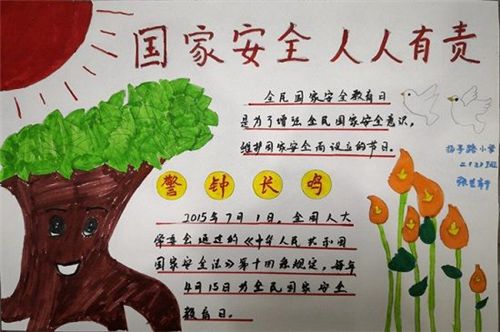 国家安全 人人有责
全民国家安全教育日
是为了增强全民国家安全意识,
维护国家安全而设立的节日。
扬子路小学
警钟长鸣
2015年7月1日,全国人大
常委会通过的《中华人民共和国
国家安全法》第十四条规定,每年
4月15日为全民国家安全
教育日。